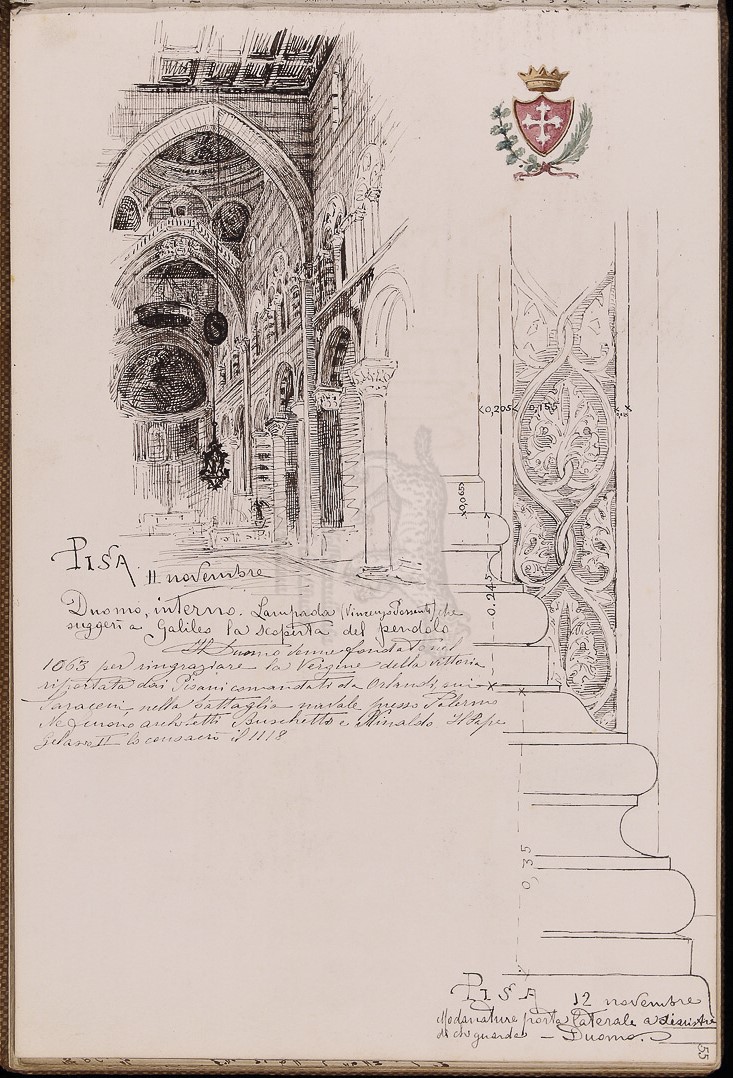 PISA 11 novembre
Duomo, interno. Lampada (Vincenzo Possenti) che
suggerì a Galileo la scoperta del pendolo
Il Duomo venne fondato nel
1063 per ringraziare la Vergine della vittoria
riportata dai Pisani comandati da Orlandi, sui
Saraceni nella battaglia navale presso Palermo
Ne furono architetti Buschetto e Rinaldo Il Papa
Gelasio II lo consacrò il 1118
0,205
0,155
0,065
0,245
0,35
PISA 12 novembre
Modanature porta laterale a
di chi guarda — Duomo.
55